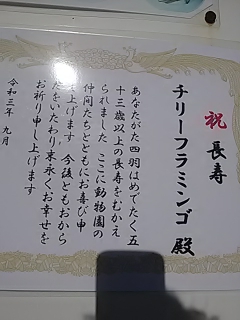 祝 長寿
チリーフラミンゴ 殿
あなたがた四羽はめでたく五
十三歳以上の長寿をむかえ
られました ここに動物園の
仲間たちとともにお喜び申
し上げます 今後ともおから
だをいたわり末永くお幸せを
お祈り申し上げます
令和三年 九月